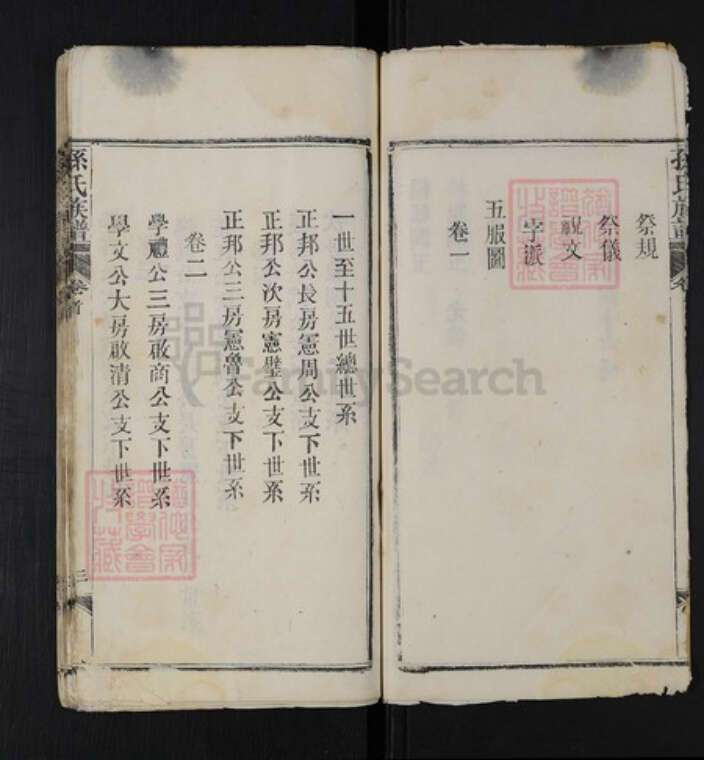 孫氏族譜
卷
祭規
祭儀
祝文
字派
五服圖
卷一
一世至十五世總世系
正邦公長房憲周公支下世系
正邦公次房憲璧公支下世系
正邦公三房憲魯公支下世系
卷二
學禮公三房啟商公支下世系
學文公大房啟清公支下世系
孫氏族譜
卷首
三
FamilySearch